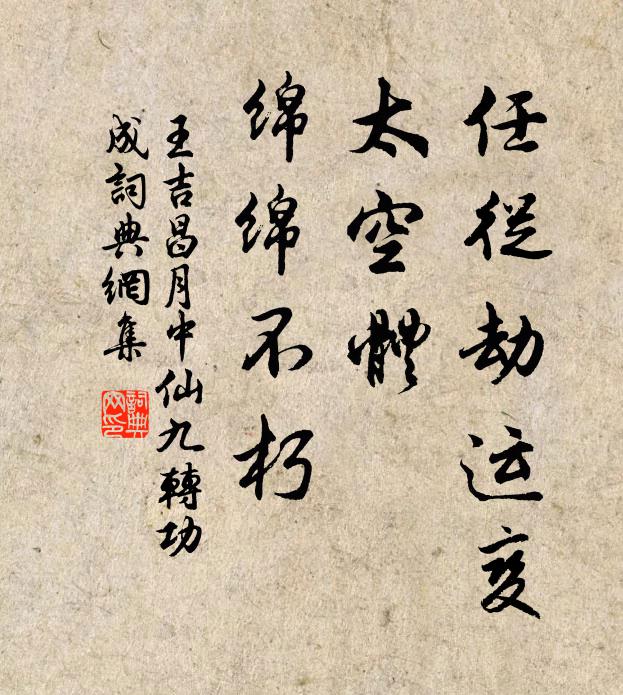 任從劫运变
太空體
绵绵不朽
王吉昌月中仙九轉功
成詞典網集
詞典网印